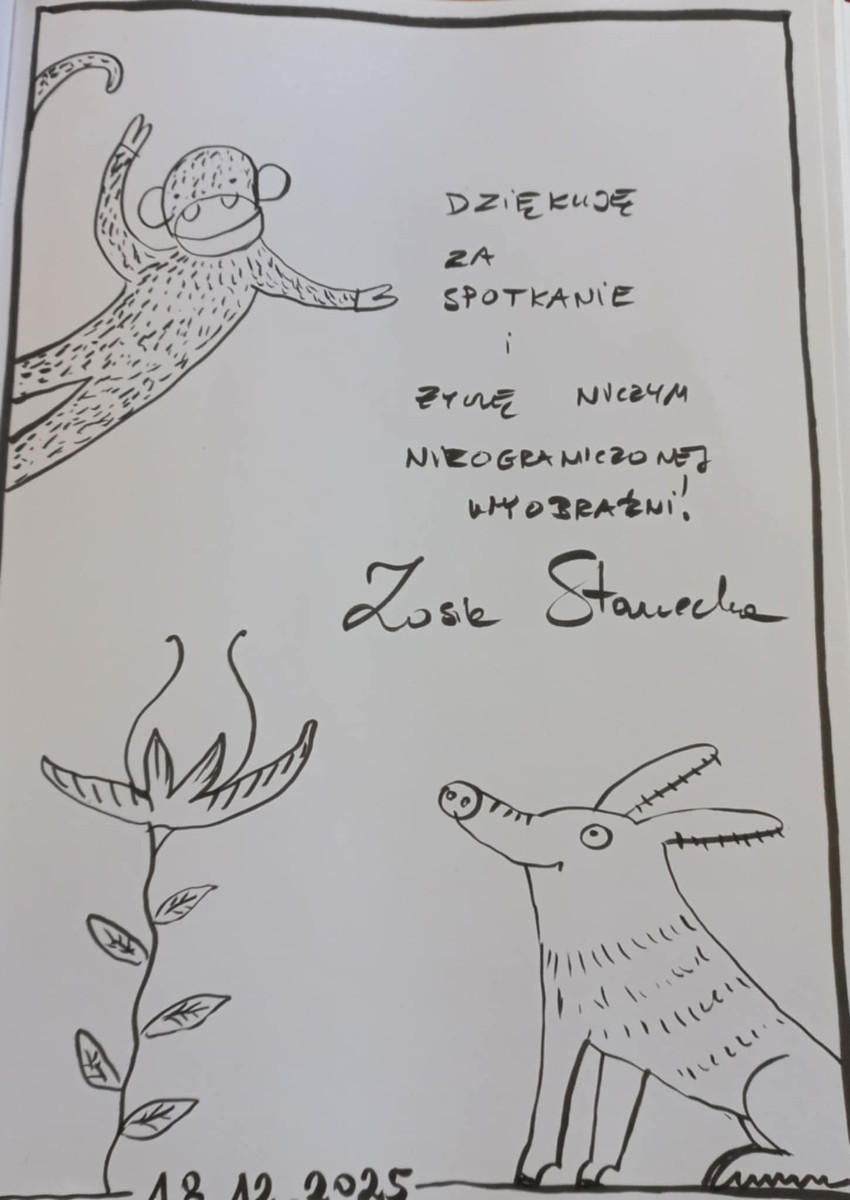 DZIĘKUJĘ
ZA
SPOTKANIE
i
ŻYCZĘ NICZYM
NIEOGRANICZONEJ
WYOBRAŹNI!
Zosia Stanecka
18.12.2025